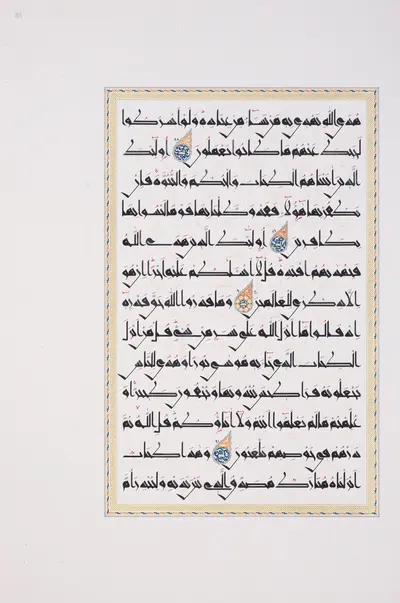 هدى الله يهدي به من يشاء من عباده ولو أشركوا
لحبط عنهم ما كانوا يعملون أولئك
الذين آتيناهم الكتاب والحكم والنبوة فإن
يكفر بها هؤلاء فقد وكلنا بها قوما ليسوا بها
بكافرين أولئك الذين هدى الله
فبهداهم اقتده قل لا أسألكم عليه أجرا إن هو
إلا ذكرى للعالمين وما قدروا الله حق قدره
إذ قالوا ما أنزل الله على بشر من شيء قل من أنزل
الكتاب الذي جاء به موسى نورا وهدى للناس
تجعلونه قراطيس تبدونها وتخفون كثيرا و
علمتم ما لم تعلموا أنتم ولا آباؤكم قل الله ثم
ذرهم في خوضهم يلعبون وهذا كتاب
أنزلناه مبارك مصدق الذي بين يديه ولتنذر أم